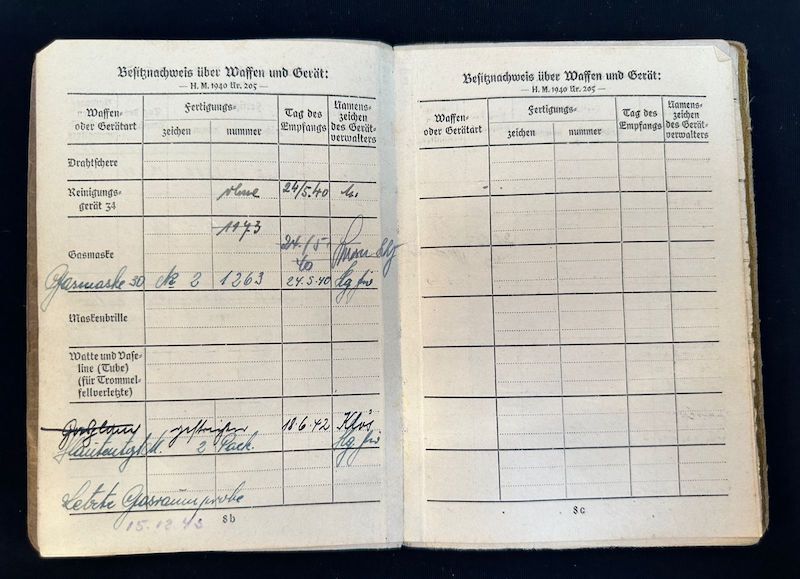 Besitznachweis über Waffen und Gerät:
— H. M. 1940 Nr. 205 —
Waffen- oder Gerätart
Fertigungs-
zeichen
nummer
Tag des Empfangs
Namens-zeichen des Gerät-verwalters
Drahtschere
Reinigungs-gerät 34 ohne 24/5.40
1173
Gasmaske 24./5 40
Gasmaske 30 № 2 1263 24.5.40
Maskenbrille
Watte und Vase-
line (Tube)
(für Trommel-
fellverletzte)
gestrichen 18.6.42
2 Pack.
Letzte Gasraumprobe
15.12.43
8b
Besitznachweis über Waffen und Gerät:
— H. M. 1940 Nr. 205 —
Waffen- oder Gerätart
Fertigungs-
zeichen
nummer
Tag des Empfangs
Namens-zeichen des Gerät-verwalters
8c